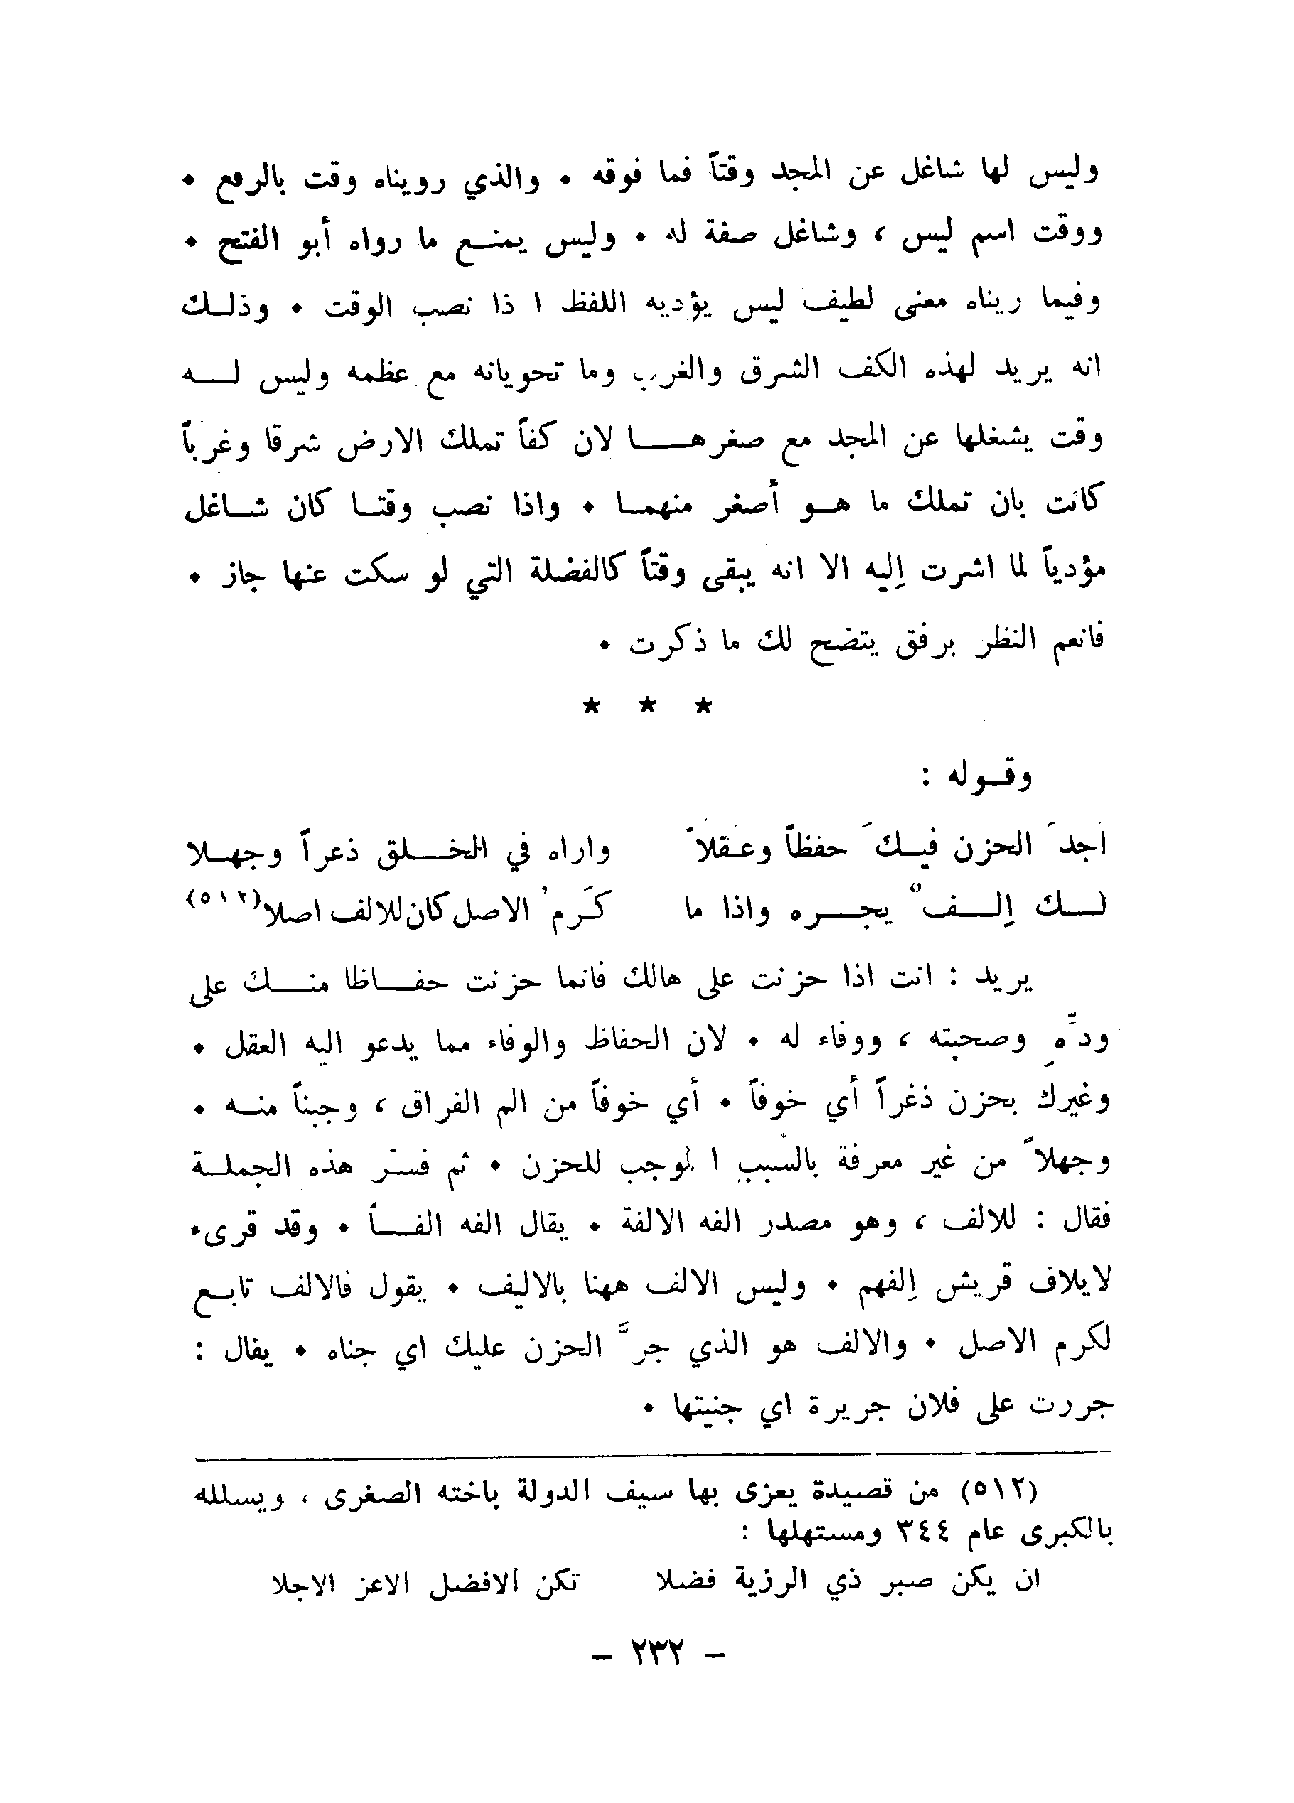 وليس لها شاغل عن المجد وقتاً فما فوقه • والذي رويناه وقت بالرفع •
ووقت اسم ليس ، وشاغل صفة له • وليس يمنــع ما رواه أبو الفتح •
وفيما ريناه معنى لطيف ليس يؤديه اللفظ ا ذا نصب الوقت • وذلــك
انه يريد لهذه الكف الشرق والغرب وما تحويانه مع عظمه وليس لــه
وقت يشغلها عن المجد مع صغرهــا لان كفاً تملك الارض شرقا وغرباً
كانت بان تملك ما هــو أصغر منهمــا • واذا نصب وقتــا كان شــاغل
مؤدياً لما اشرت إليه الا انه يبقى وقتاً كالفضلة التي لو سكت عنها جاز •
فانعم النظر برفق يتضح لك ما ذكرت •
★ ★ ★
وقــوله :
اجدَ الحزن فيــكَ حفظاً وعــقلاً واراه في الخــلق ذعراً وجهــلا
لــك إلــفٌ يجــره واذا ما كَرمُ الاصل كان للالف اصلا(٥١٢)
يريد : انت اذا حزنت على هالك فانما حزنت حفــاظا منــك على
ودّهِ وصحبته ، ووفاء له • لان الحفاظ والوفاء مما يدعو اليه العقل •
وغيرك بحزن ذغراً أي خوفاً • أي خوفاً من الم الفراق ، وجبناً منــه •
وجهلاً من غير معرفة بالسبب ا لموجب للحزن • ثم فسّر هذه الجملــة
فقال : للالف ، وهو مصدر الفه الالفة • يقال الفه الفــاً • وقد قرىء
لايلاف قريش إلفهم • وليس الالف ههنا بالاليف • يقول فالالف تابــع
لكرم الاصل • والالف هو الذي جرَّ الحزن عليك اي جناه • يقال :
جررت على فلان جريرة اي جنيتها •
(٥١٢) من قصيدة يعزى بها سيف الدولة باخته الصغرى ، ويسلله
بالكبرى عام ٣٤٤ ومستهلها :
ان يكن صبر ذي الرزية فضلا تكن الافضل الاعز الاجلا
– ٢٣٢ –